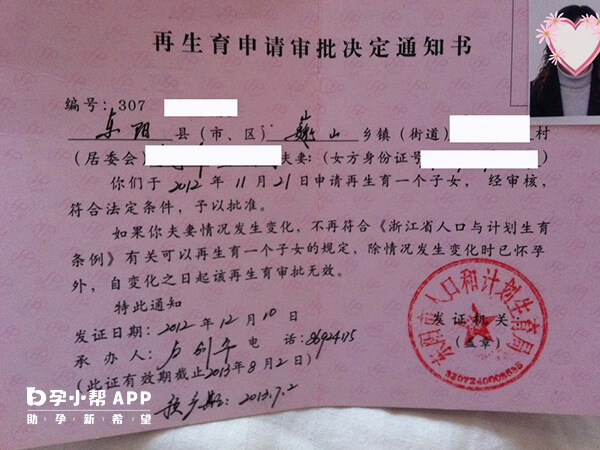 再生育申请审批决定通知书
编号：307
东阳县（市、区）巍山乡镇（街道）村
（居委会）夫妻：（女方身份证号）
你们于2012年11月21日申请再生育一个子女，经审核，
符合法定条件，予以批准。
如果你夫妻情况发生变化，不再符合《浙江省人口与计划生育
条例》有关可以再生育一个子女的规定，除情况发生变化时已怀孕
外，自变化之日起该再生育审批无效。
特此通知
发证机关
（盖章）
东阳市人口和计划生育局
发证日期：2012年12月10日
承办人：电话：86924115
（此证有效期截止2013年8月2日）
2013.7.2
孕小帮APP
助孕新希望